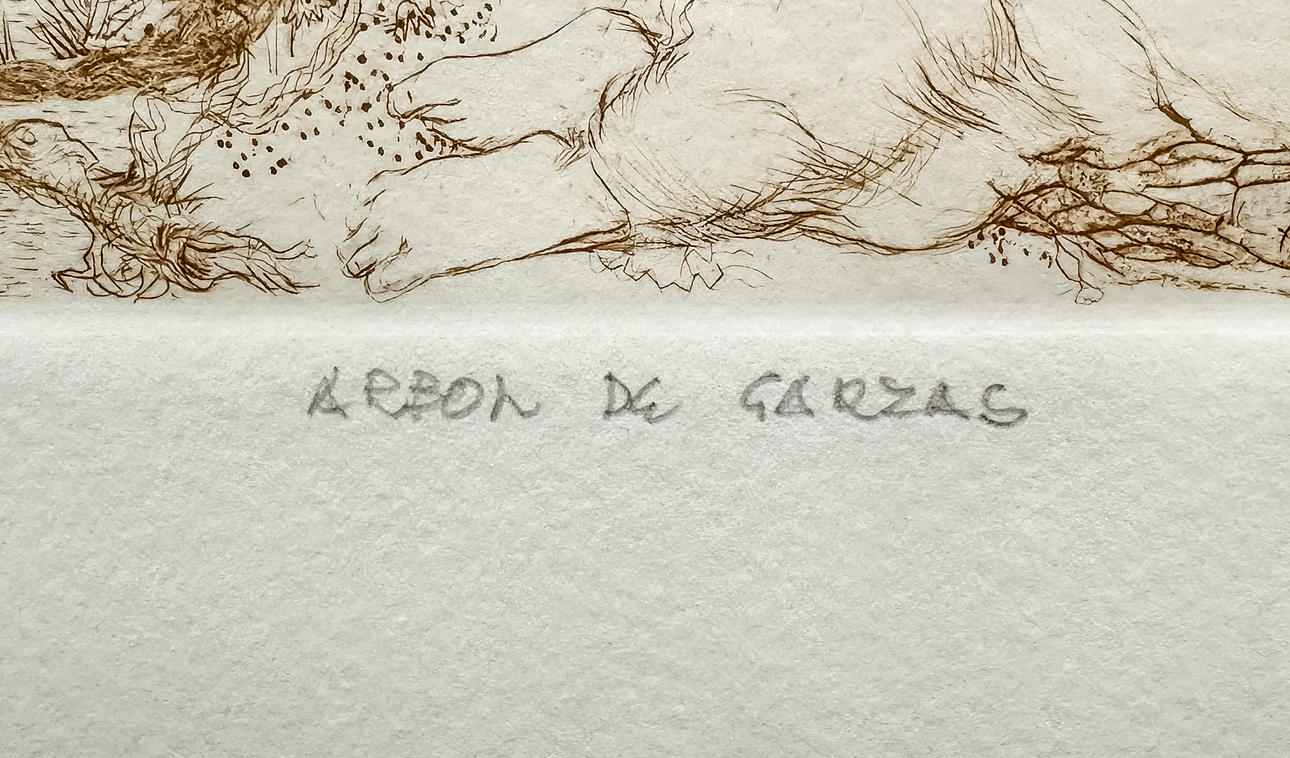 ARBOL DE GARZAS